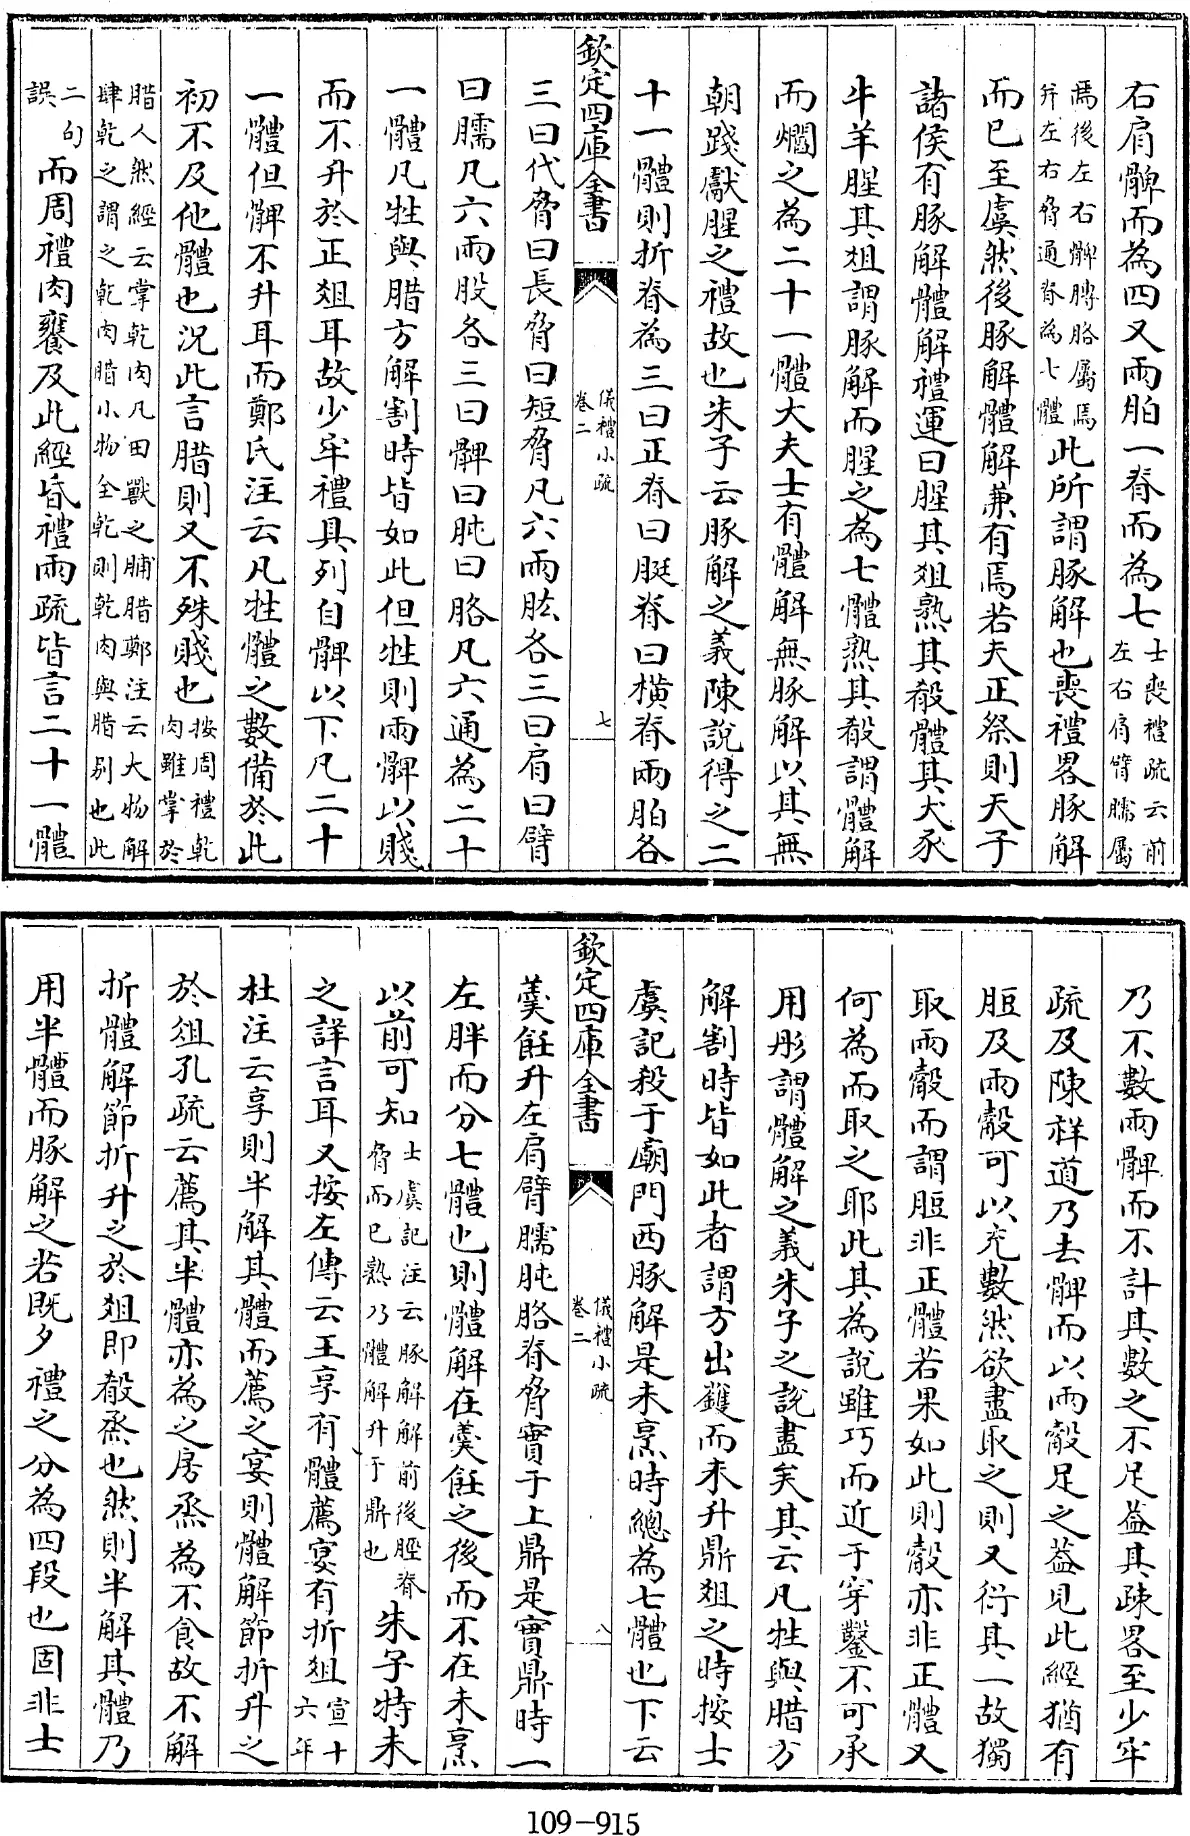 右肩髀而為四又兩胉一脊而為七士喪禮疏云前左右肩臂臑屬
焉後左右髀膊胳屬焉并左右脅通脊為七體此所謂豚解也喪禮畧豚解
而已至虞然後豚解體解兼有焉若夫正祭則天子
諸侯有豚解體解禮運曰腥其俎熟其殽體其犬豕
牛羊腥其俎謂豚解而腥之為七體熟其殽謂體解
而爓之為二十一體大夫士有體解無豚解以其無
朝踐獻腥之禮故也朱子云豚解之義陳說得之二
十一體則折脊為三曰正脊曰脡脊曰橫脊兩胉各
欽定四庫全書
儀禮小疏
卷二
七
三曰代脅曰長脅曰短脅凡六兩肱各三曰肩曰臂
曰臑凡六兩股各三曰髀曰肫曰胳凡六通為二十
一體凡牲與腊方解割時皆如此但牲則兩髀以賤
而不升於正俎耳故少牢禮具列自髀以下凡二十
一體但髀不升耳而鄭氏注云凡牲體之數備於此
初不及他體也況此言腊則又不殊賤也按周禮乾肉雖掌於
腊人然經云掌乾肉凡田獸之脯腊鄭注云大物解肆乾之謂之乾肉腊小物全乾則乾肉與腊别也此
二句誤而周禮内饔及此經昏禮兩疏皆言二十一體
乃不數兩髀而不計其數之不足益其疎畧至少牢
疏及陳祥道乃去髀而以兩觳足之葢見此經猶有
脰及兩觳可以充數然欲盡取之則又衍其一故獨
取兩觳而謂脰非正體若果如此則觳亦非正體又
何為而取之耶此其為說雖巧而近于穿鑿不可承
用彤謂體解之義朱子之說盡矣其云凡牲與腊方
解割時皆如此者謂方出鑊而未升鼎俎之時按士
虞記殺于廟門西豚解是未烹時總為七體也下云
欽定四庫全書
儀禮小疏
卷二
八
羹飪升左肩臂臑肫胳脊脅實于上鼎是實鼎時一
左胖而分七體也則體解在羹飪之後而不在未烹
以前可知士虞記注云豚解解前後脛脊脅而已熟乃體解升于鼎也朱子特未
之詳言耳又按左傳云王享有體薦宴有折俎宣十六年
杜注云享則半解其體而薦之宴則體解節折升之
於俎孔疏云薦其半體亦為之房烝為不食故不解
折體解節折升之於俎即殽烝也然則半解其體乃
用半體而豚解之若既夕禮之分為四段也固非士
109-915